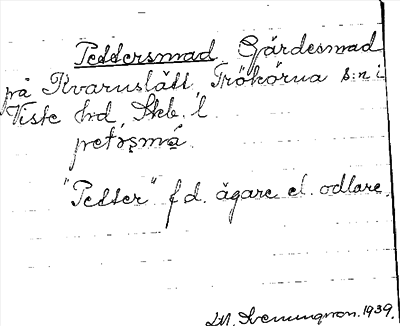 Pettersmad Gärdesmad
på Kvarnslätt, Frökärna s:n i
Viste hd, Skb. l.
petəʂmá̱
"Petter" f d. ägare el. odlare.
Sveningson. 1939.